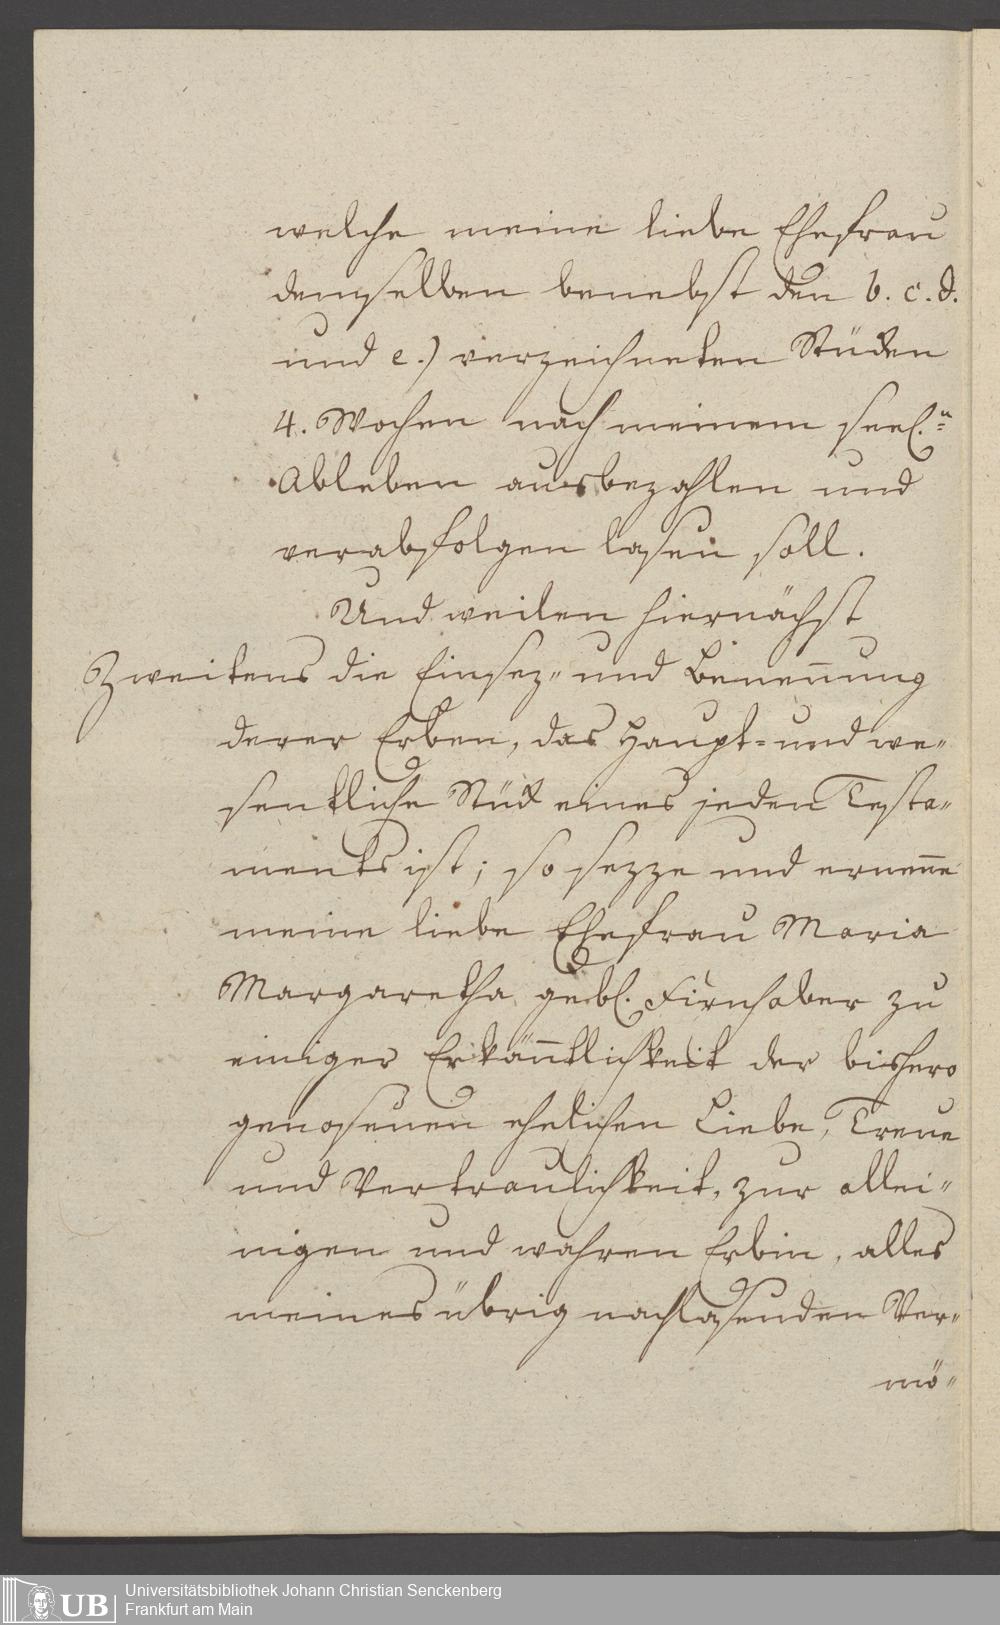 welche meine liebe Ehefrau
demselben benebst den b. c. d.
und e.) verzeichneten Stücken
4. Wochen nach meinem seel.n
Ableben ausbezahlen und
verabfolgen lasen soll.
Und weilen hiernächst
Zweitens die Einsez- und Benen̄ung
derer Erben, das Haupt- und we-
sentliche Stück eines jeden Testa-
ments ist; so sezze und ernen̄e
meine liebe Ehefrau Maria
Margaretha gebl. Firnhaber zu
einiger Erkän̄tlichkeit der bishero
genosenen ehelichen Liebe, Treue
und Vertraulichkeit, zur allei-
nigen und wahren Erbin, alles
meines übrig nachlasenden Ver-
mö-
UB
Universitätsbibliothek Johann Christian Senckenberg
Frankfurt am Main